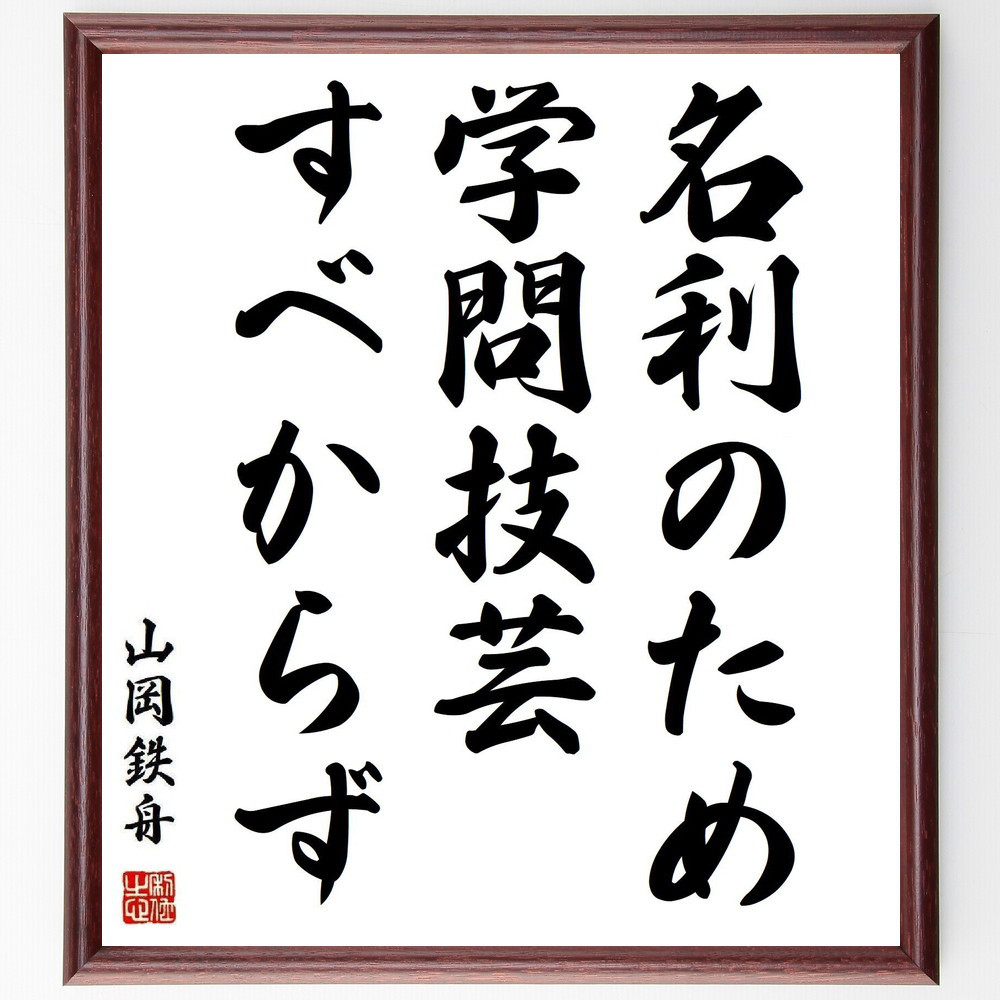 名利のため
学問技芸
すべからず
山岡鉄舟